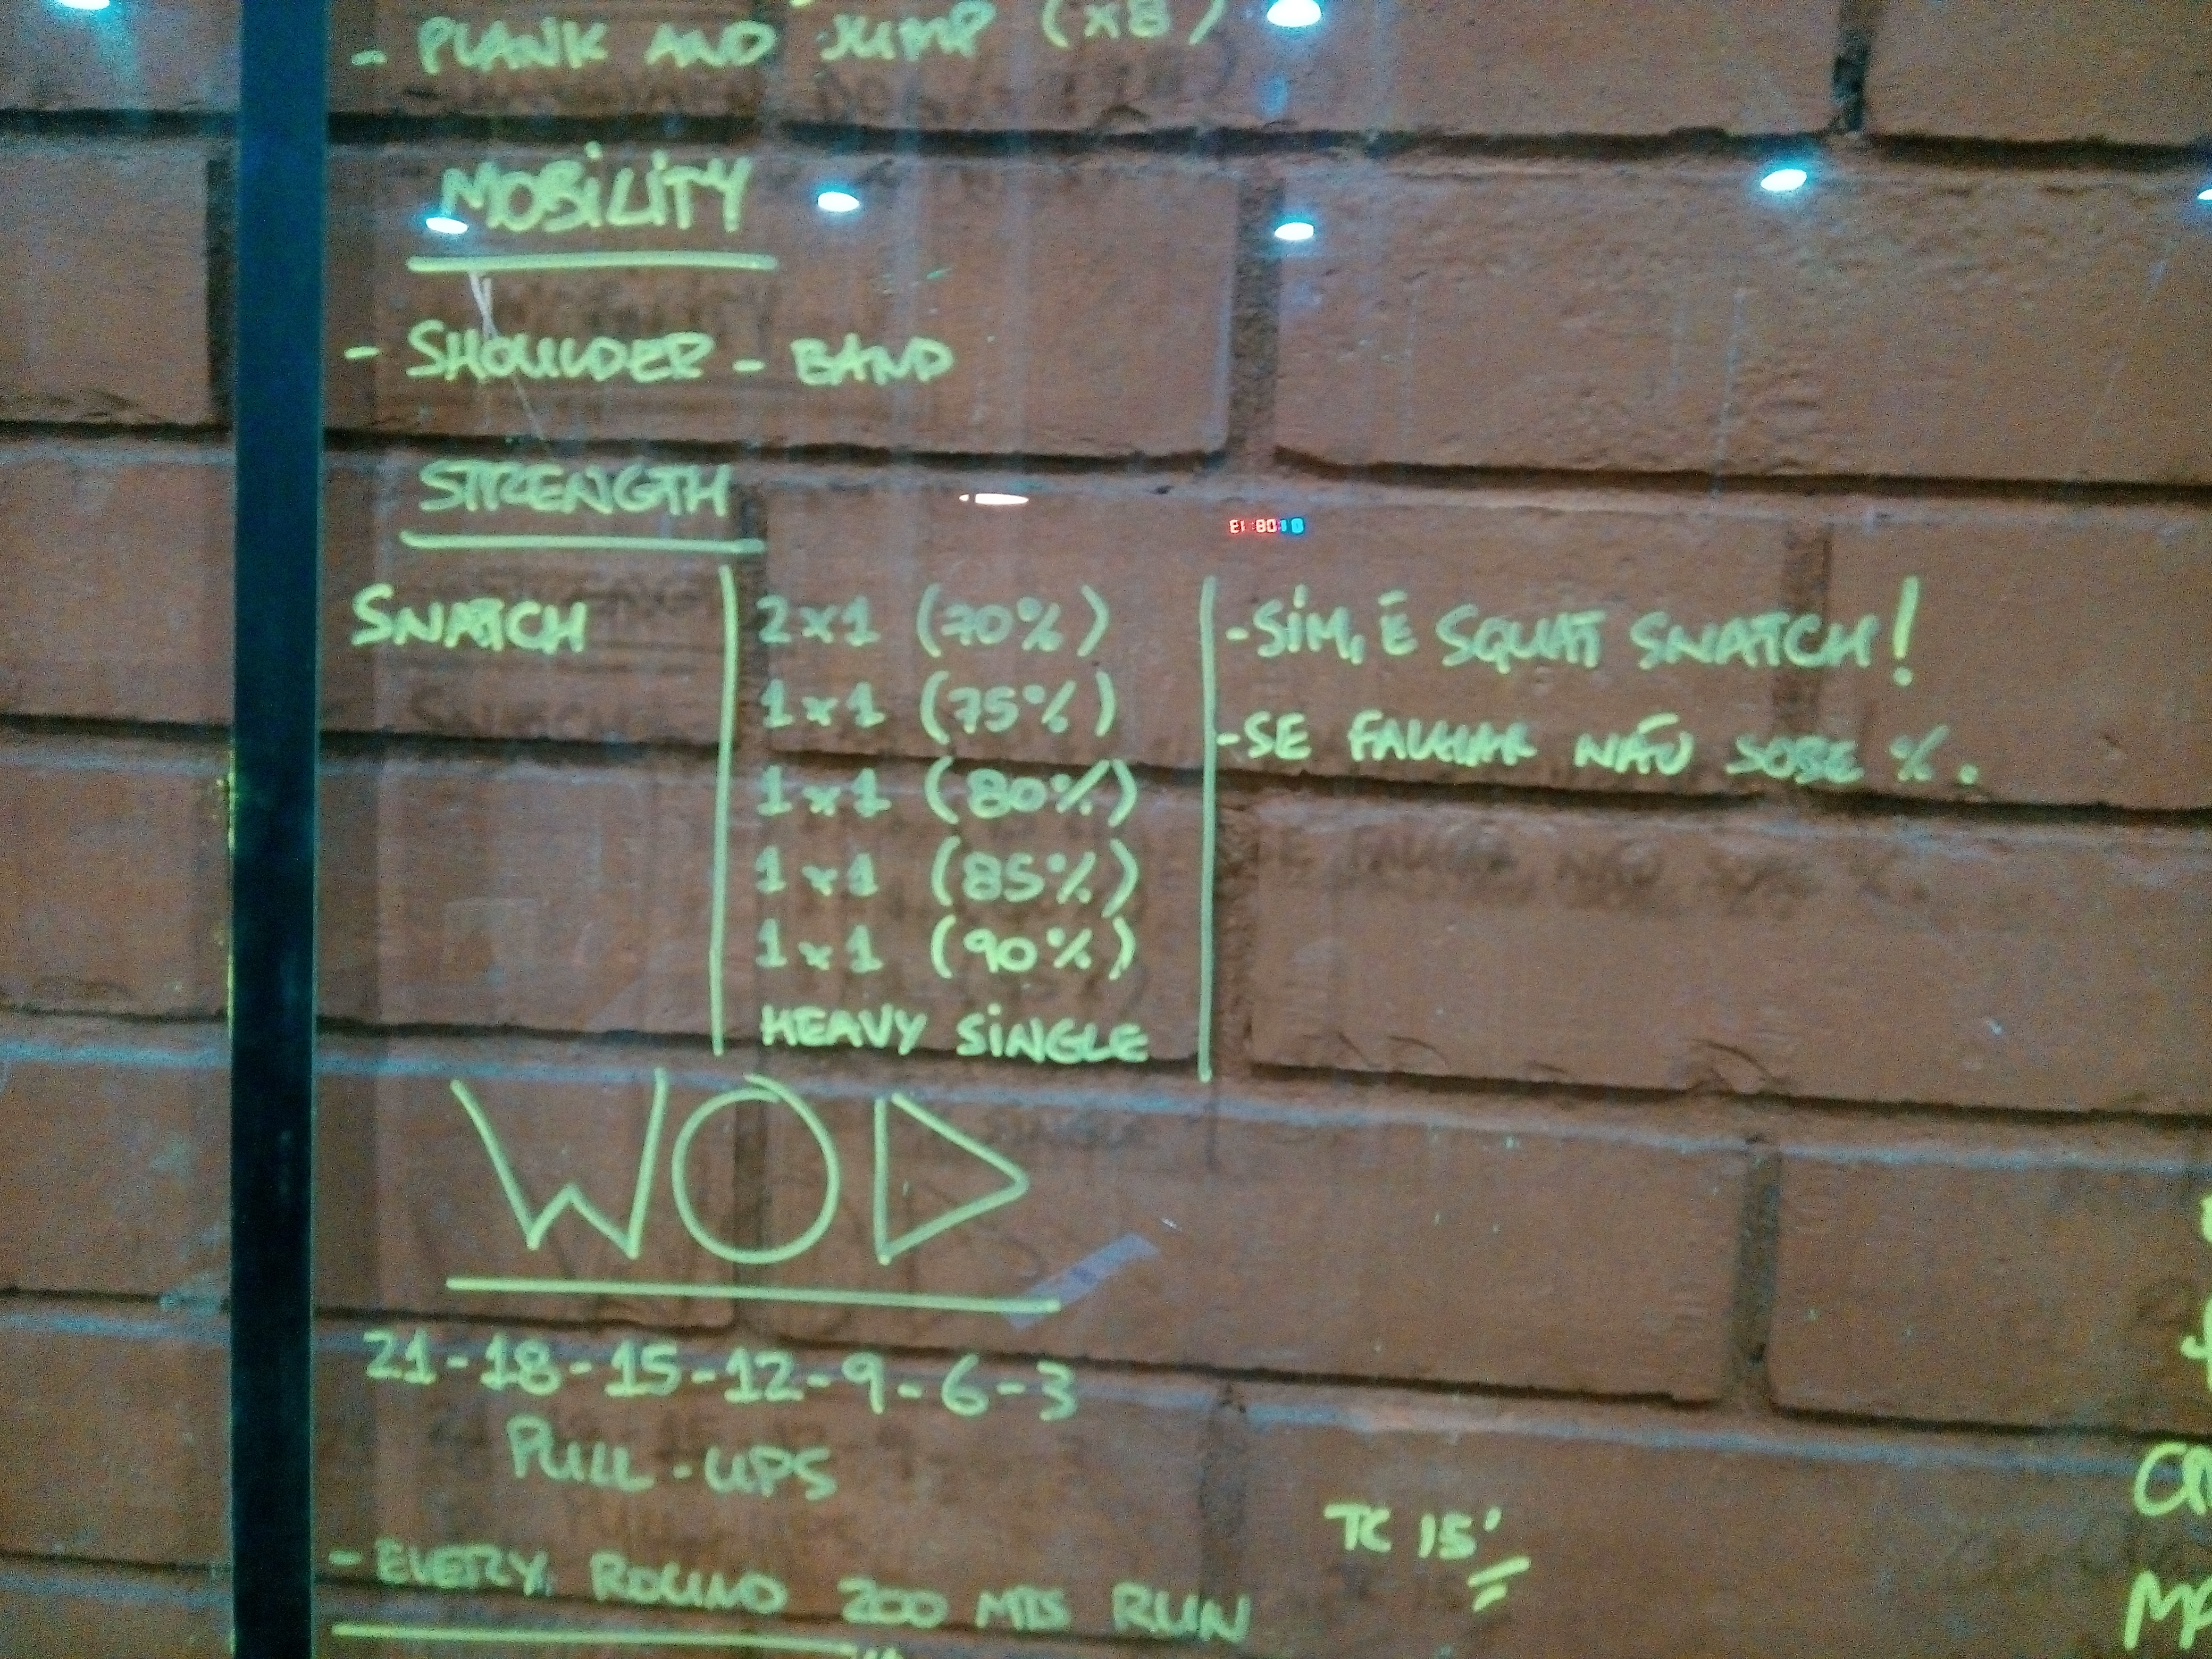 - PLANK AND JUMP (x8)
MOBILITY
- SHOULDER - BAND
STRENGTH
SNATCH
2x1 (70%)
1x1 (75%)
1x1 (80%)
1x1 (85%)
1x1 (90%)
HEAVY SINGLE
-SIM, É SQUAT SNATCH!
-SE FALHAR NÃO SOBE %.
WOD
21-18-15-12-9-6-3
PULL-UPS
- EVERY ROUND 200 MTS RUN
TC 15'